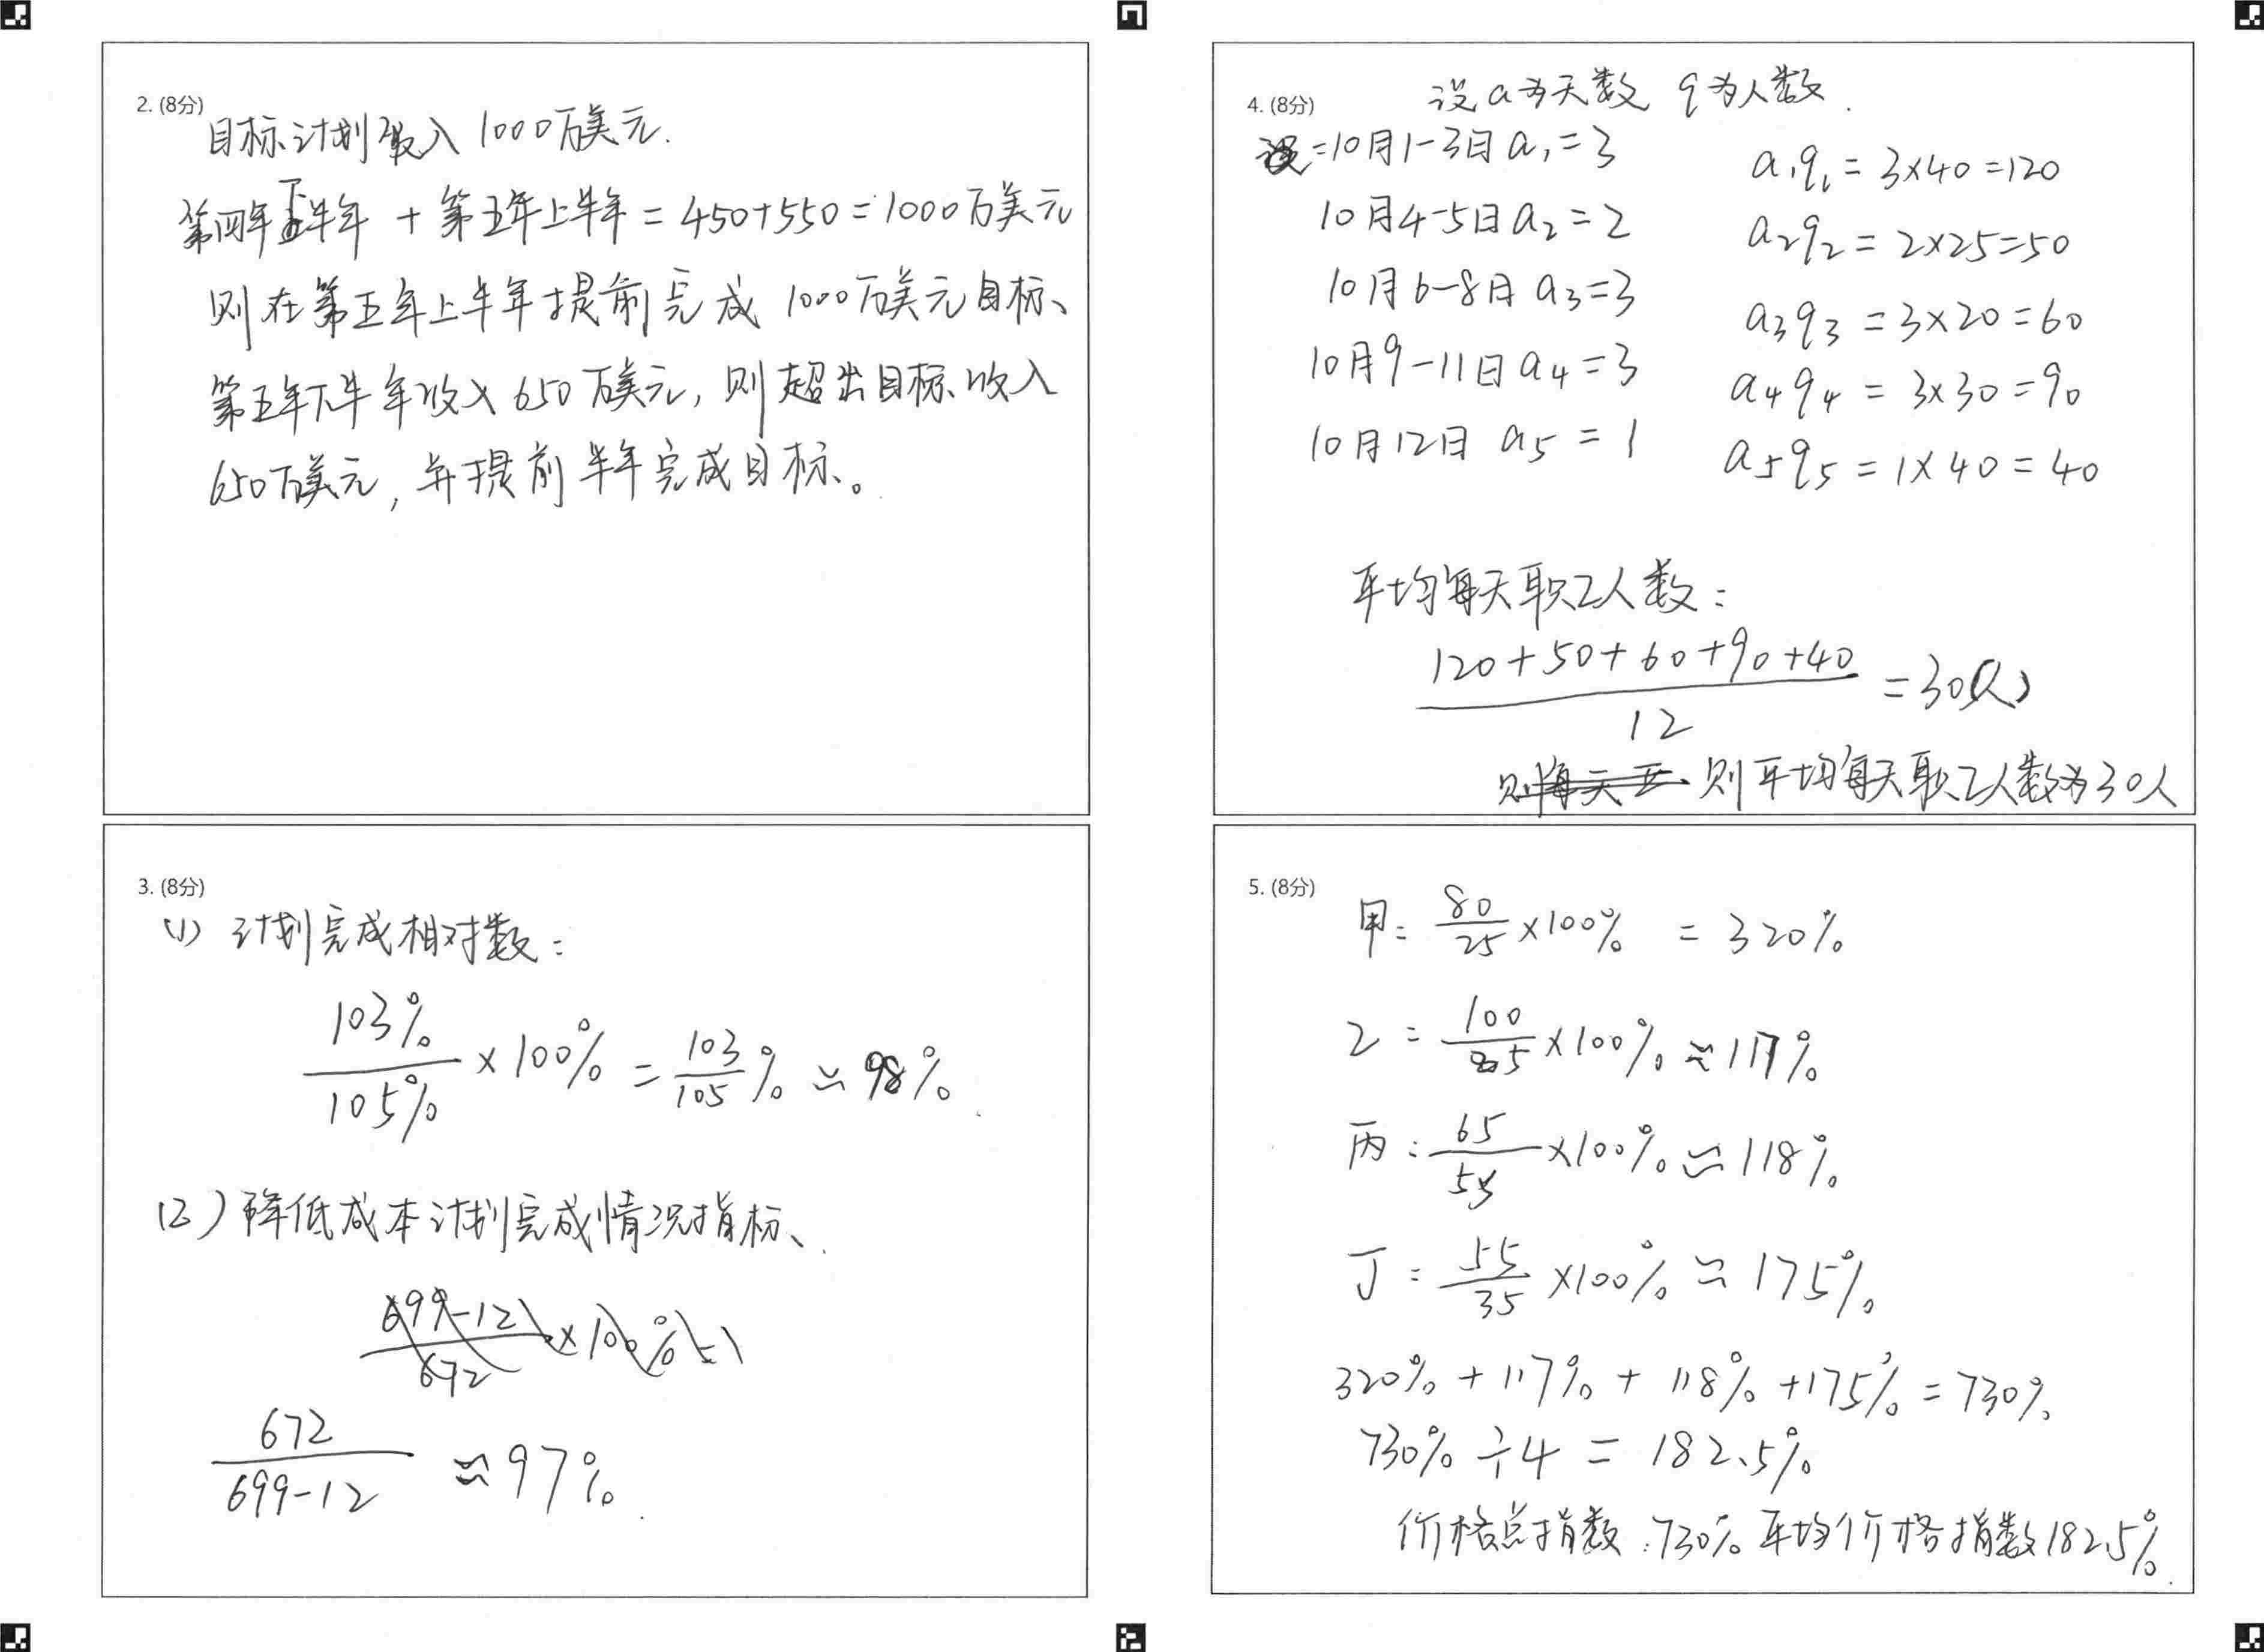 2. (8分)
目标计划收入 1000万美元.
第四年下半年 + 第五年上半年 = 450+550 = 1000万美元
则在第五年上半年提前完成 1000万美元目标、
第五年下半年收入 650万美元, 则超出目标收入
650万美元, 并提前半年完成目标。
3. (8分)
(1) 计划完成相对数:
103% / 105% × 100% = 103/105 % ≈ 98%
(2) 降低成本计划完成情况指标、
672 / 699-12 ≈ 97%
4. (8分)
设 a为天数 q为人数.
10月1-3日 a₁=3 a₁q₁ = 3×40 =120
10月4-5日 a₂=2 a₂q₂ = 2×25=50
10月6-8日 a₃=3 a₃q₃ = 3×20=60
10月9-11日 a₄=3 a₄q₄ = 3×30=90
10月12日 a₅ = 1 a₅q₅ = 1×40=40
平均每天职工人数:
120+50+60+90+40 / 12 = 30(人)
则平均每天职工人数为30人
5. (8分)
甲: 80/25 ×100% = 320%
乙: 100/85 ×100% ≈ 117%
丙: 65/55 ×100% ≈ 118%
丁: 55/35 ×100% ≈ 175%
320% + 117% + 118% + 175% = 730%
730% ÷4 = 182.5%
价格总指数:730% 平均价格指数182.5%.